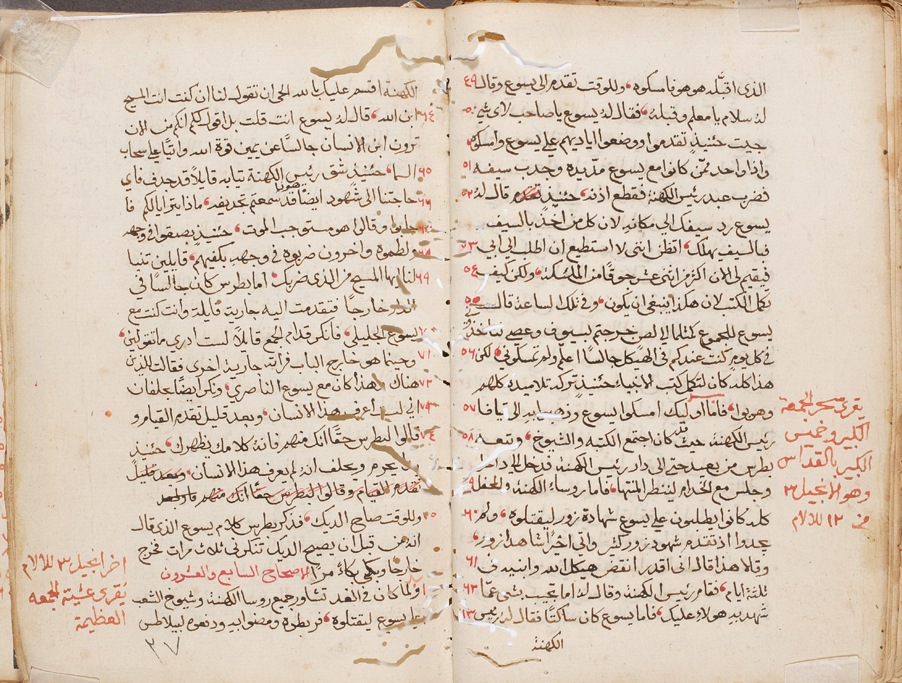 الذي اقبّله هو هو فامسكوه وللوقت تقدم الى يسوع وقال ٤٩
له سلام يا معلم وقبله فقال له يسوع يا صاحب لاي شي ٥٠
جيت حنيذٍ تقدموا ووضعوا اياديهم على يسوع وامسكوه
واذا واحد ممّن كانوا مع يسوع مدّ يده وجدب سيفه ٥١
فضرب عبد رئيس الكهنة فقطع اذنه حنيذٍ قال له ٥٢
يسوع رد سيفك الى مكانه لان كل من اخذ بالسيف
فبالسيف يهلك اتظن اننى لا استطيع ان اطلب الى ابي ٥٣
فيقيم لي الان اكثر من اثنى عشر جوقًا من الملايكة ولكن كيف ٥٤
تكمل الكتب لان هكذا ينبغي ان يكون وفي تلك الساعة قال ٥٥
يسوع للجموع كمثلما الى لص خرجتم بسيوف وعصي لتاخذوني
في كل يوم كنت عندكم في الهيكل جالسًا اعلّم ولم تمسكوني لكن ٥٦
هذا كله كان لتكمل كتب الانبياء حنيذٍ تركه تلاميذه كلهم
وهربوا فاما اوليك امسكوا يسوع وذهبوا به الى قيافا ٥٧
رئيس الكهنة حيث كان اجتمع الكتبة والشيوخ وتبعه ٥٨
بطرس من بعيد حتى الى دار رئيس الكهنة فدخل الى داخل
وجلس مع الخدام لينظر المنتها فاما روساء الكهنة والمحفل ٥٩
كله كانوا يطلبون على يسوع شهادة زور ليقتلوه ولم ٦٠
يجدوا اذ تقدم شهود زور كثير واتى اخرًا شاهدا زور
وقالا هذا قال اني اقدر انقض هيكل الله وابنيه في ٦١
ثلثة ايام فقام رئيس الكهنة وقال له اما تجيب بشي عمّا ٦٢
شهد به هولاء عليك فاما يسوع كان ساكتًا فقال له رئيس ٦٣
الكهنة
يقرى سحر الجمعة
الكبير وخميس
الكبير بالقداس
وهو الانجيل ٣
من ١٢ للالام
الكهنة اقسم عليك بالله الحي ان تقول لنا ان كنت انت المسيح
ابن الله قال له يسوع انت قلت بل اقول لكم انكم من الان ٦٤
ترون ابن الانسان جالسًا عن يمين قوة الله واتيًا على سحاب
السما حنيذٍ شق رئيس الكهنة ثيابه قايلًا قد جدف فاي ٦٥
حاجتنا الى شهود ايضًا قد سمعتم تجديفه ماذا يترايا لكم فا ٦٦
جابوا وقالوا هو مستوجب الموت حنيذٍ بصقوا في وجهه
ولطموه واخرون ضربوه في وجهه بكفهم قايلين تنبا
لنا ايها المسيح من الذي ضربك اما بطرس كان جالسًا في ٦٩
الدار خارجًا فتقدمت اليه جارية قايلة وانت كنت مع
يسوع الجليلي فانكر قدام الجمع قايلًا لست ادري ما تقولين
وحينما هو خارج الباب فراته جارية اخرى فقالت للذين ٧١
هناك وهذا كان مع يسوع الناصري ونكر ايضًا بحلفان ٧٢
اني لست اعرف هذا الانسان وبعد قليل تقدم القيام و ٧٣
قالوا لبطرس حقًا انك منهم فانه كلامك يظهرك حنيذٍ ٧٤
بدى يحرم ويحلف انه لم يعرف هذا الانسان وبعد قليلًا
تقدم القيام وقالوا لبطرس حقًا انك منهم
وللوقت صاح الديك فذكر بطرس كلام يسوع الذي قال ٧٥
انه من قبل ان يصيح الديك تنكرني ثلاث مرات فخرج
خارجًا وبكى بكاءً مرًا الاصحاح السابع والعشرون
ولما كان في الغد تشاور جميع روسا الكهنة وشيوخ الشعب
على يسوع ليقتلوه فربطوه ومضوا به ودفعوه لبيلاطس
اخر انجيل ٣ للالام
يقرى عشية الجمعه
العظيمة
٢٧